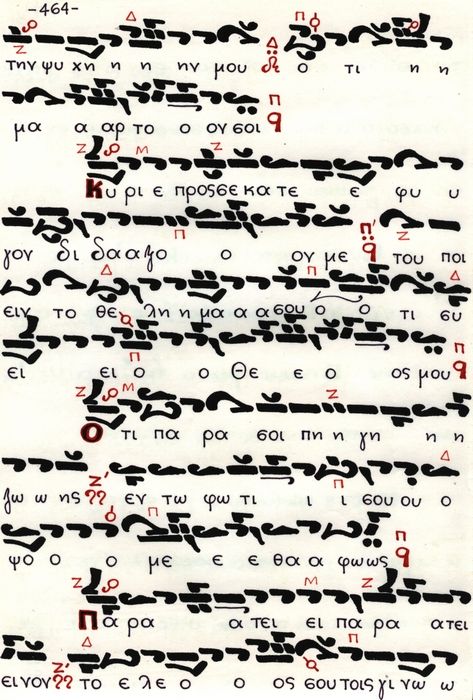 -464-
την ψυ χη η η ην μου ο τι η η
μα α αρ το ο ον σοι
Κυ ρι ε προς σε κα τε ε φυ υ
γον δι δα α ξο ο ον με του ποι
ειν το θε λη η μα α α σου ο ο τι συ
ει ει ο ο Θε ε ο ος μου
Ο τι πα ρα σοι πη η γη η η
ζω ω ης εν τω φω τι ι ι σου ου ο
ψο ο ο με ε ε θα α φω ως
Πα ρα α τει ει πα ρα α τει
ει νον το ε λε ο ο ος σου τοις γι νω ω